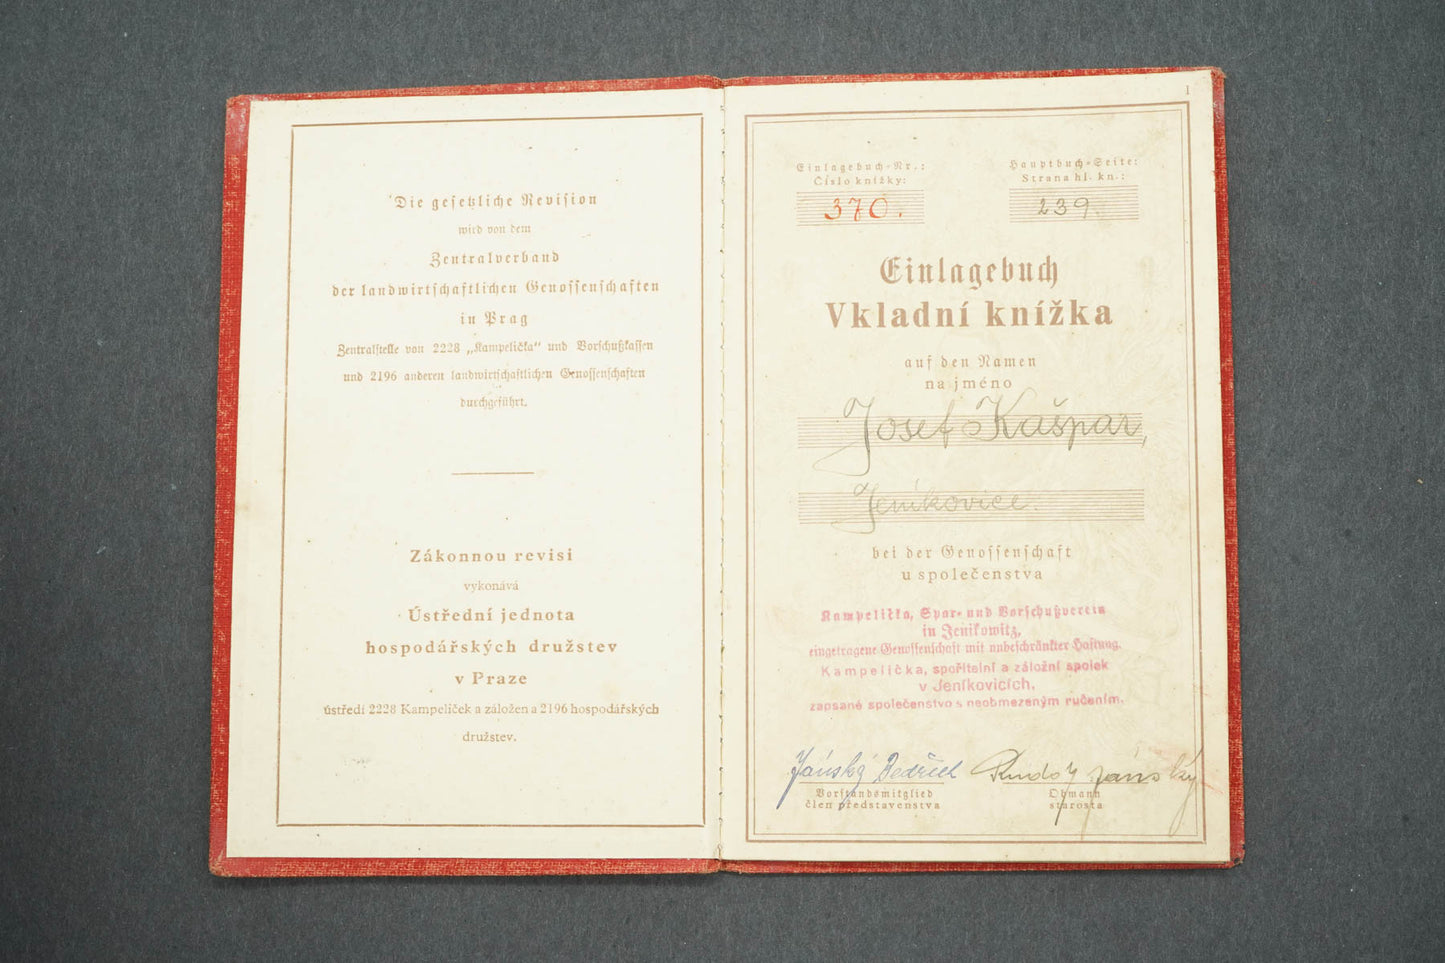 Die gesetzliche Revision
wird von dem
Zentralverband
der landwirtschaftlichen Genossenschaften
in Prag
Zentralstelle von 2228 „Kampelička“ und Vorschußkassen
und 2196 anderen landwirtschaftlichen Genossenschaften
durchgeführt.
Zákonnou revisi
vykonává
Ústřední jednota
hospodářských družstev
v Praze
ústředí 2228 Kampeliček a záložen a 2196 hospodářských
družstev.
1
Einlagebuch-Nr.:
Číslo knížky:
370.
Hauptbuch-Seite:
Strana hl. kn.:
239.
Einlagebuch
Vkladní knížka
auf den Namen
na jméno
Josef Kašpar,
Jeníkovice.
bei der Genossenschaft
u společenstva
Kampelička, Spar- und Vorschußverein
in Jenikowitz,
eingetragene Genossenschaft mit unbeschränkter Haftung.
Kampelička, spořitelní a záložní spolek
v Jeníkovicích,
zapsané společenstvo s neobmezeným ručením.
Jánský Bedřich
Vorstandsmitglied
člen představenstva
Rudolf Jánský
Obmann
starosta